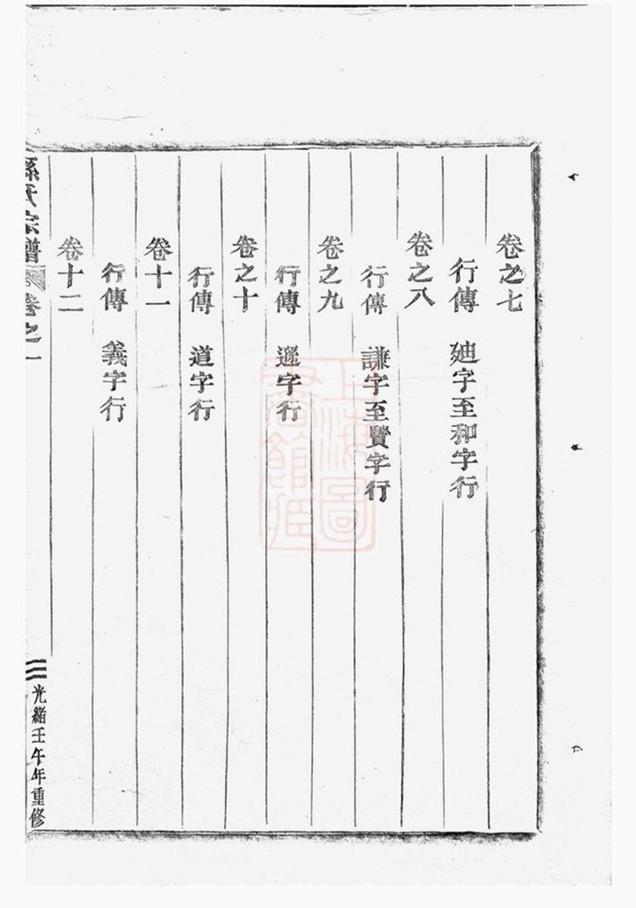 卷之七
行傳　廸字至和字行
卷之八
行傳　謙字至賢字行
卷之九
行傳　遜字行
卷之十
行傳　道字行
卷十一
行傳　義字行
卷十二
孫氏宗譜　卷之一
三　光緒壬午年重修
上海圖書館藏